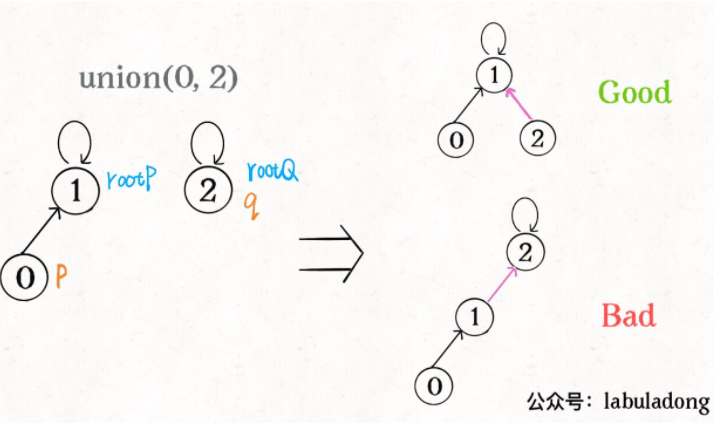 union(0, 2)
1 rootP
2 rootQ
q
0 p
1
0 2
Good
2
1
0
Bad
公众号：labuladong